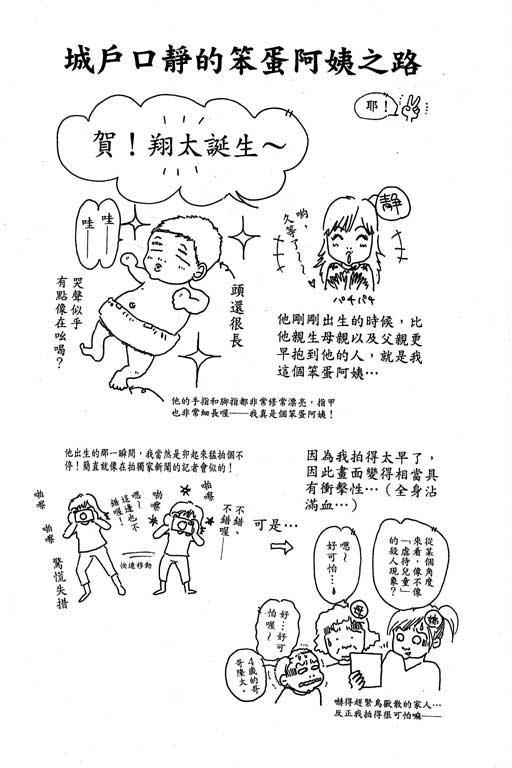 城戶口靜的笨蛋阿姨之路
耶！
賀！翔太誕生～
靜
喲，
久等了～～
哇——
哇——
哭聲似乎
有點像在吆喝？
頭還很長
パチパチ
他剛剛出生的時候，比
他親生母親以及父親更
早抱到他的人，就是我
這個笨蛋阿姨…
他的手指和腳指都非常修常漂亮，指甲
也非常細長喔——我真是個笨蛋阿姨！
他出生的那一瞬間，我當然是卯起來猛拍個不
停！簡直就像在拍獨家新聞的記者會似的！
因為我拍得太早了，
因此畫面變得相當具
有衝擊性…（全身沾
滿血…）
啪嚓
啪嚓
嗯～
這邊也不
錯喔！
啪嚓
啪嚓
啪嚓
不錯、
不錯喔——
快速移動
驚慌失措
可是…
從某個角度
來看，像不像
「虐待兒童」
的殺人現象？
嗯～
好可怕…
好…好可
怕喔～
4歲的哥
哥隆太。
嚇得趕緊鳥獸散的家人…
反正我拍得很可怕嘛——